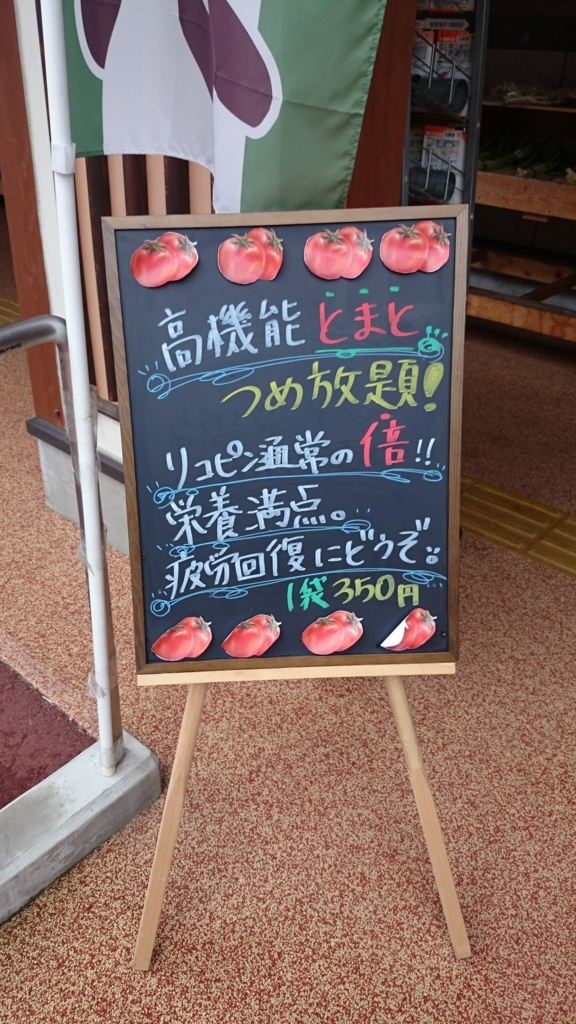 高機能とまと
つめ放題!
リコピン通常の倍!!
栄養満点。
疲労回復にどうぞ。
1袋350円